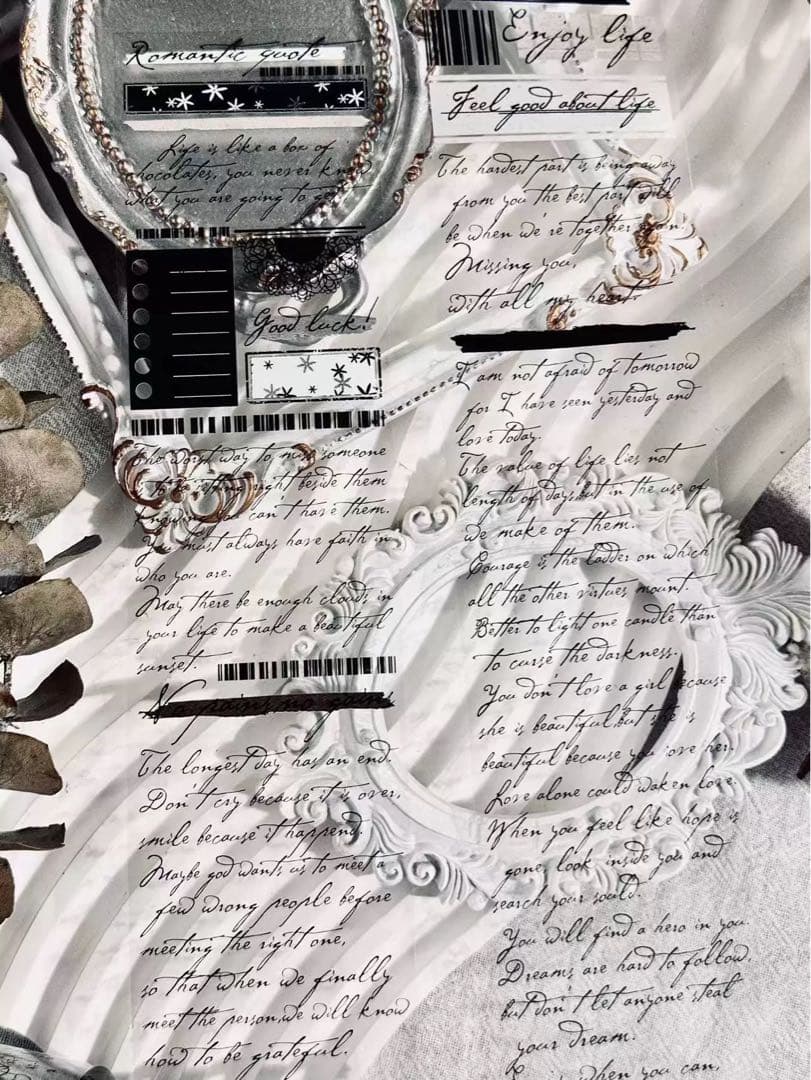 Romantic quote
Life is like a box of
chocolates, you never know
what you are going to get
Good luck!
The worst way to miss someone
to be sitting right beside them
knowing you can't have them.
You must always have faith in
who you are.
May there be enough clouds in
your life to make a beautiful
sunset.
No pains, no gains
The longest day has an end.
Don't cry because it is over,
smile because it happend.
Maybe god wants us to meet a
few wrong people before
meeting the right one,
so that when we finally
meet the person,we will know
how to be grateful.
Enjoy life
Feel good about life
The hardest part is being away
from you the best part will
be when we're together again.
Missing you,
with all my heart.
I am not afraid of tomorrow
for I have seen yesterday and
love today.
The value of life lies not
length of days,but in the use of
we make of them.
Courage is the ladder on which
all the other virtues mount.
Better to light one candle than
to curse the darkness.
You don't love a girl because
she is beautiful,but she is
beautiful because you love her.
Love alone could waken love.
When you feel like hope is
gone, look inside you and
search your sould.
You will find a hero in you.
Dreams are hard to follow,
but don't let anyone steal
your dream.
when you can,